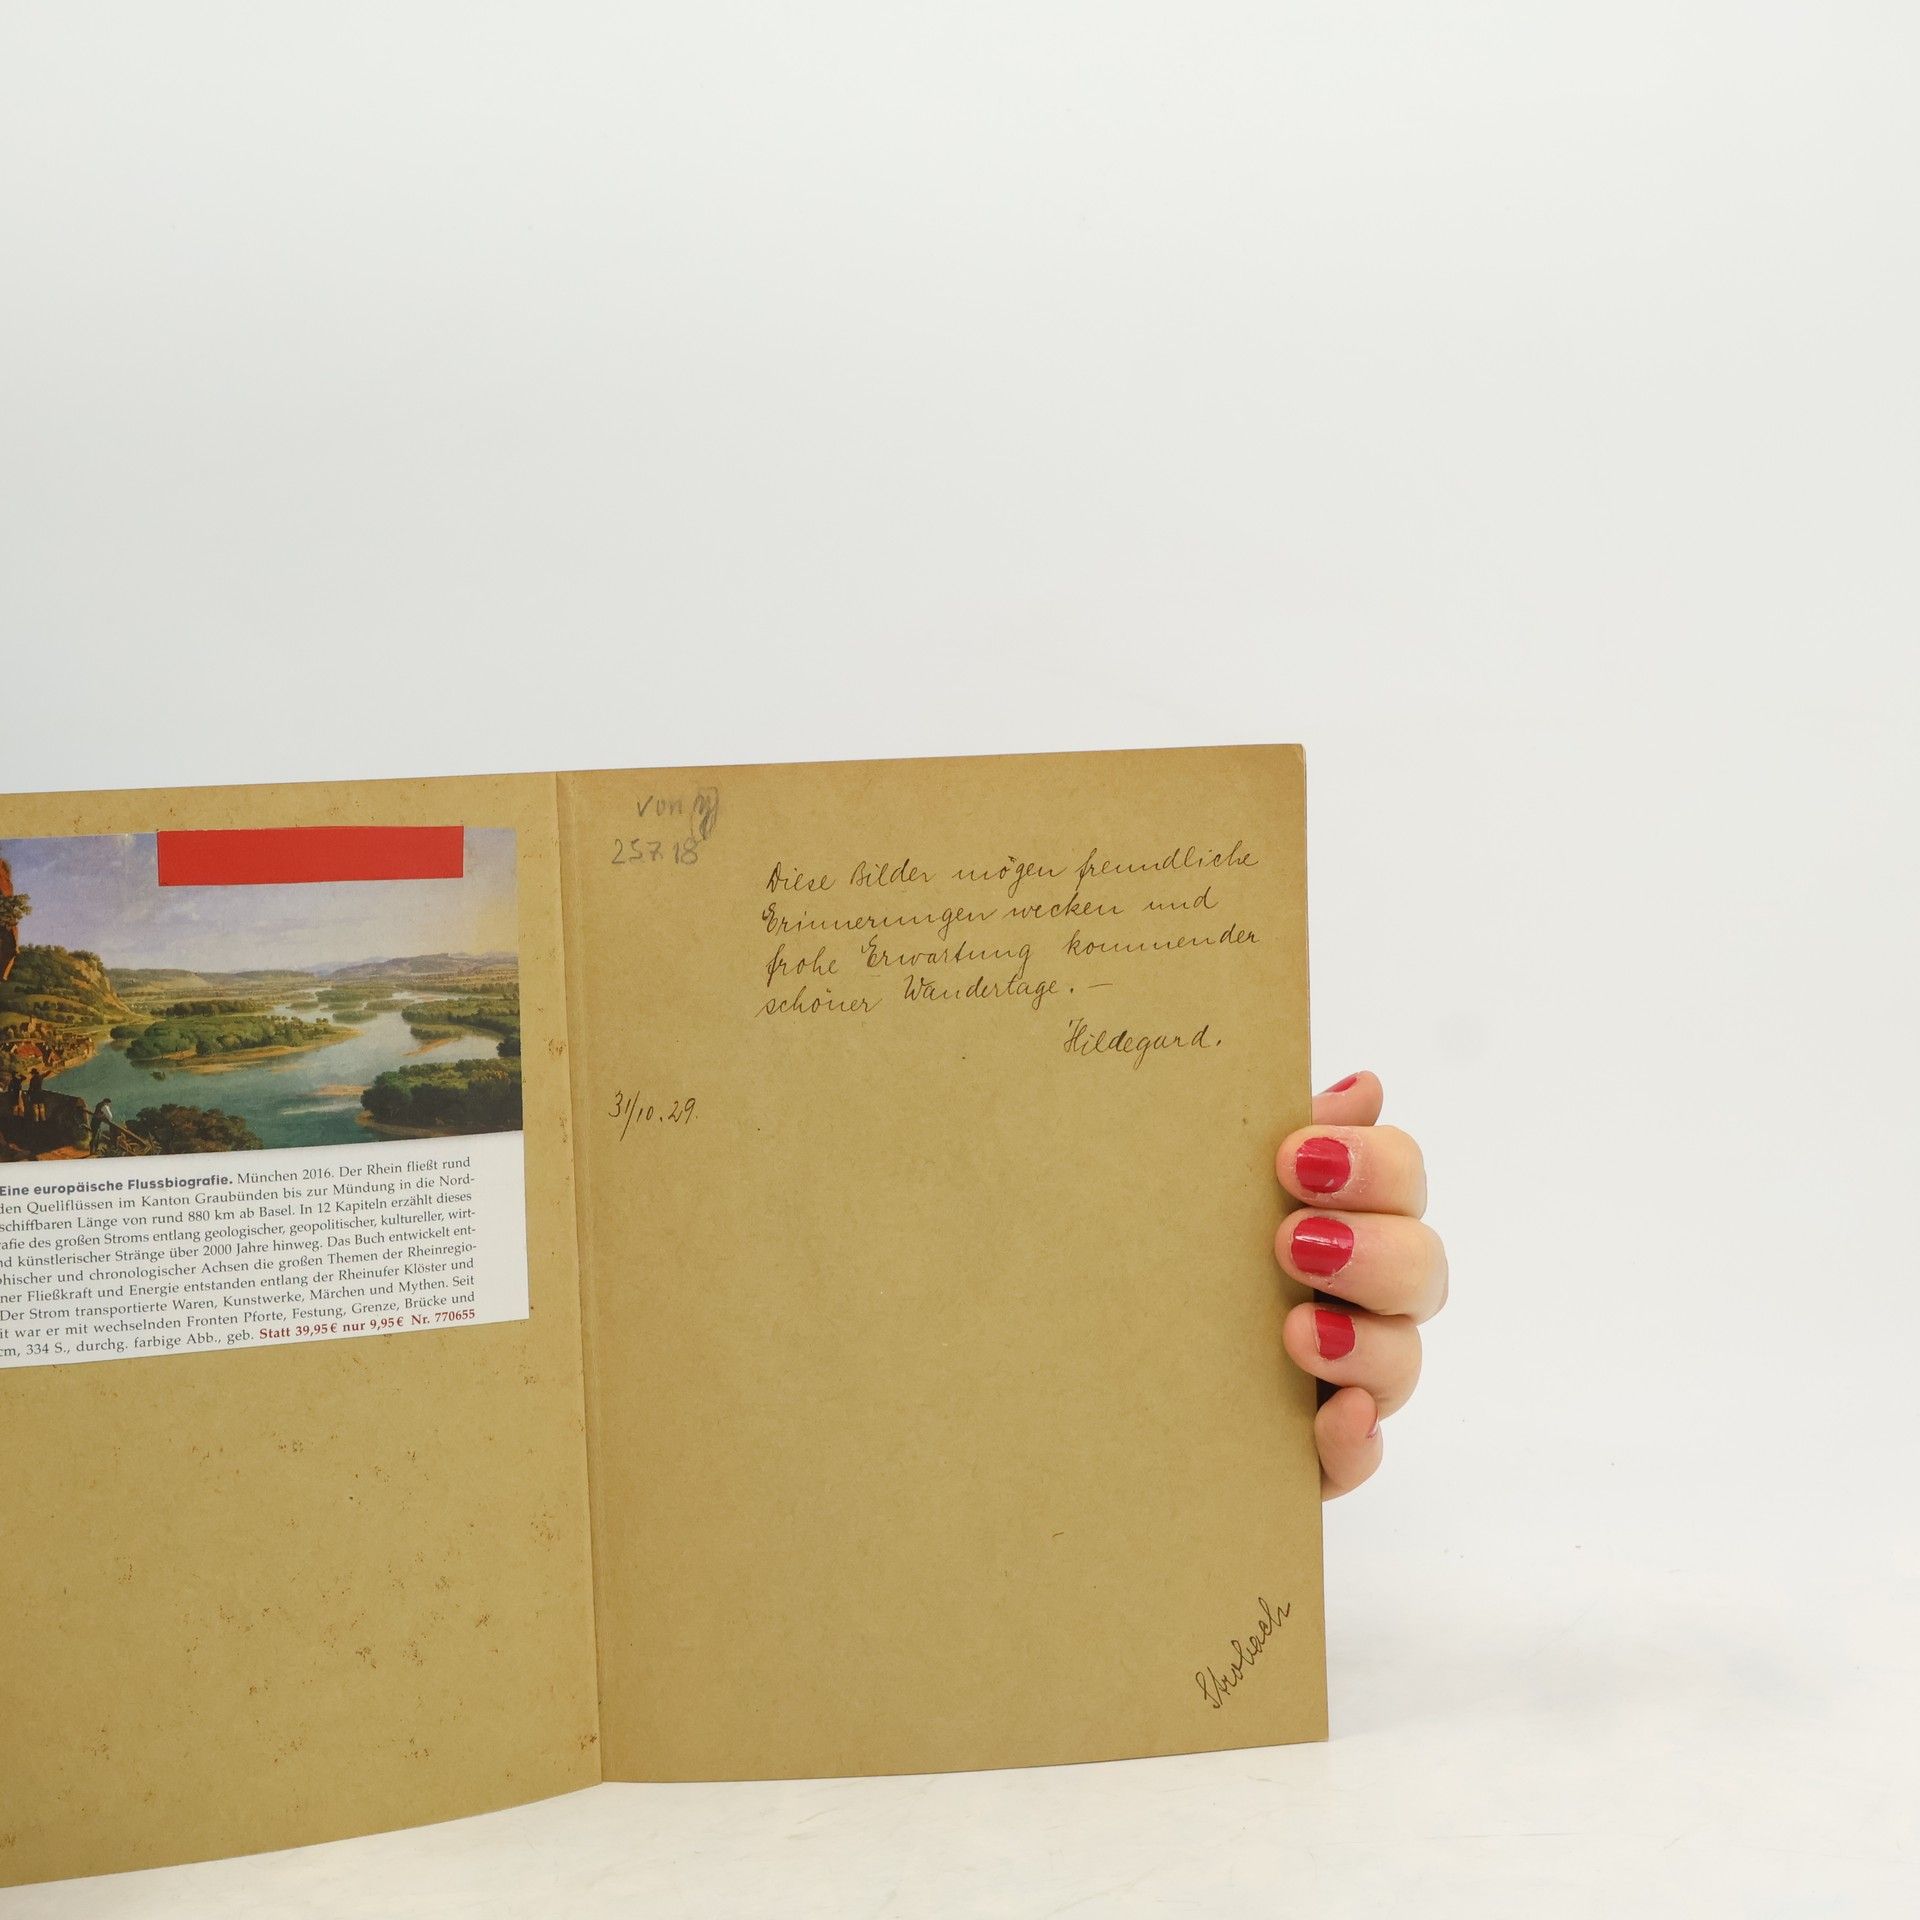 Eine europäische Flussbiografie. München 2016. Der Rhein fließt rund
den Quellflüssen im Kanton Graubünden bis zur Mündung in die Nord-
schiffbaren Länge von rund 880 km ab Basel. In 12 Kapiteln erzählt dieses
rafie des großen Stroms entlang geologischer, geopolitischer, kultureller, wirt-
nd künstlerischer Stränge über 2000 Jahre hinweg. Das Buch entwickelt ent-
phischer und chronologischer Achsen die großen Themen der Rheinregio-
ner Fließkraft und Energie entstanden entlang der Rheinufer Klöster und
Der Strom transportierte Waren, Kunstwerke, Märchen und Mythen. Seit
it war er mit wechselnden Fronten Pforte, Festung, Grenze, Brücke und
cm, 334 S., durchg. farbige Abb., geb. Statt 39,95 € nur 9,95 € Nr. 770655
von
25718
Diese Bilder mögen freundliche
Erinnerungen wecken und
frohe Erwartung kommender
schöner Wandertage. –
Hildegard.
31/10.29.
Strobach